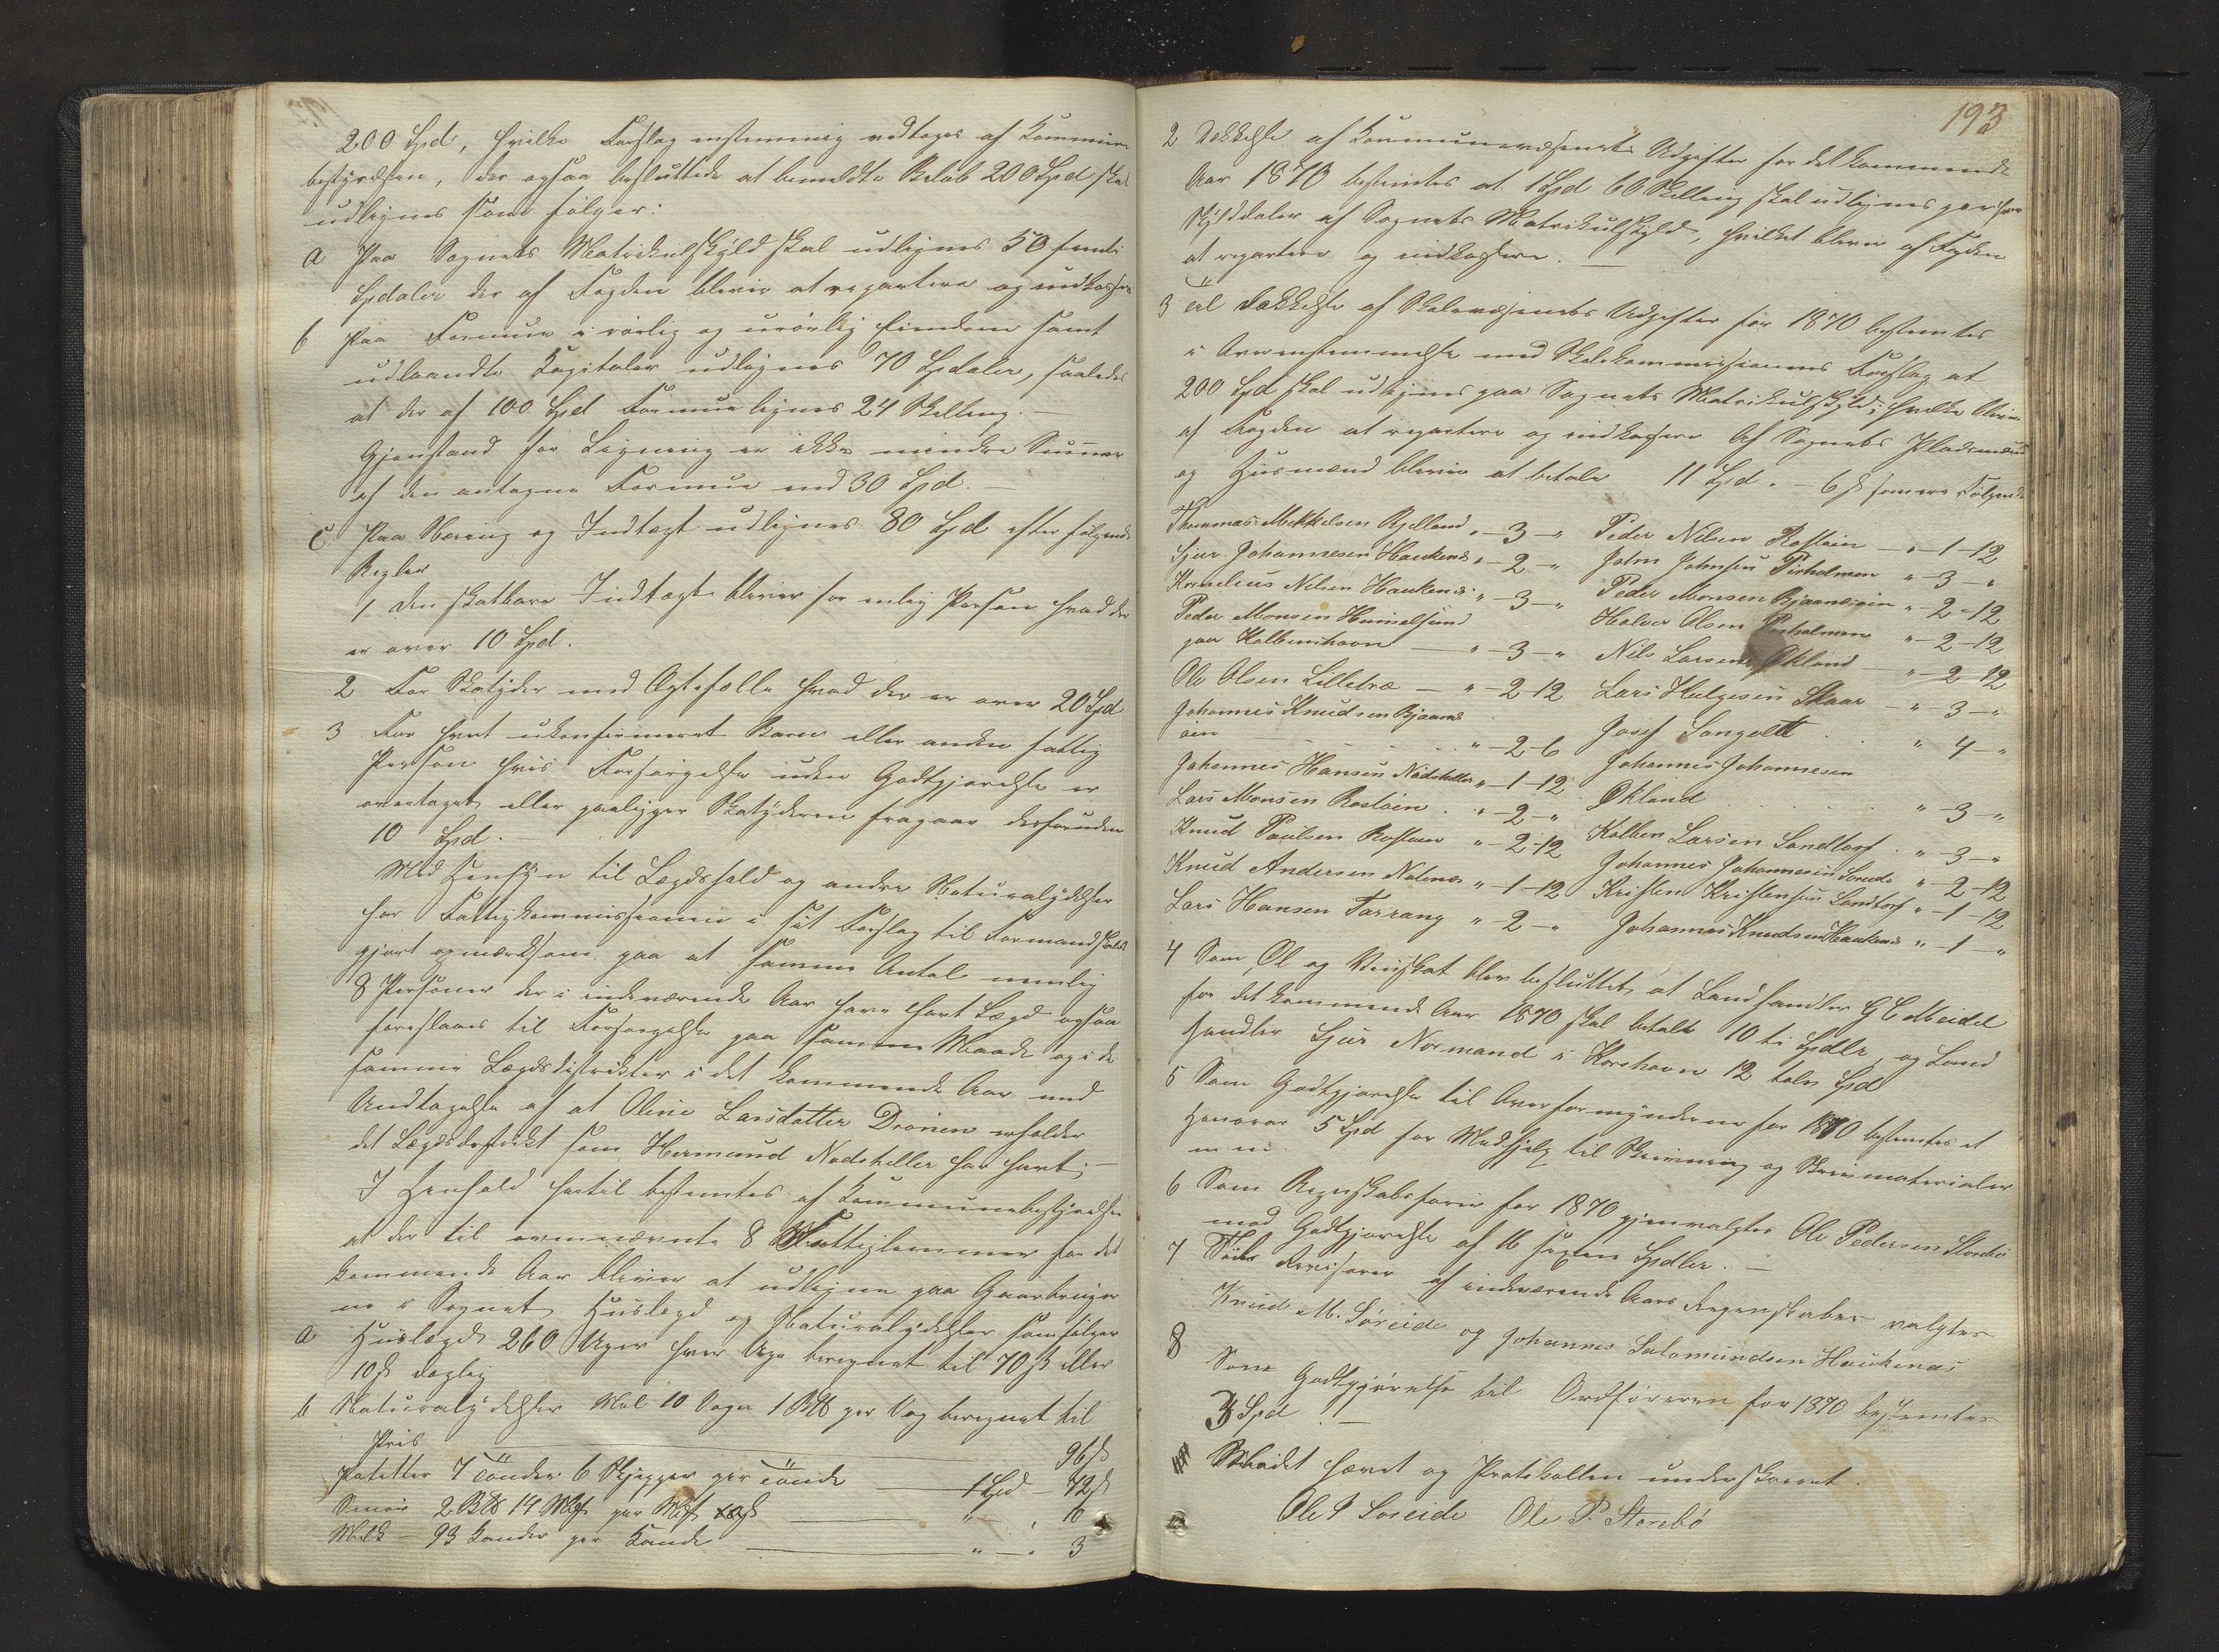 200 Spd, hvilke Forslag enstemmig vedtages af Kommune
bestyrelsen, der ogsaa besluttede at bemeldte Beløb 200 Spd skal
udlignes som følger:
a Paa Sognets Matrikulskyld skal udlignes 50 femti
Spdaler der af Fogden bliver at repartere og indkassere
b Paa Formue i rørlig og urørlig Eiendom samt
udlaante Kapitaler udlignes 70 Spdaler, saaledes
at der af 100 Spd Formue lignes 24 Skilling.
Gjenstand for Ligning er ikke mindre Summer
af den antagne Formue end 30 Spd. —
c Paa Næring og Indtægt udlignes 80 Spd efter følgende
Regler
1 Den skatbare Indtægt bliver for enlig Person hvad der
er over 10 Spd.
2 For Skatyder med Ægtefælle hvad der er over 20 Spd
3 For hvert ukonfirmeret Barn eller anden fattig
Person hvis Forsørgelse uden Godtgjørelse er
overtaget eller paaligger Skatyderen fragaar desforuden
10 Spd. —
Med Hensyn til Lægdshold og andre Naturalydelser
har Fattigkommissionen i sit Forslag til Formandskabet
gjort opmærksom paa at samme Antal nemlig
8 Personer der i indeværende Aar have havt Lægd ogsaa
foreslaaes til Forsørgelse paa samme Maade og i de
samme Lægdsdistrikter i det kommende Aar med
Undtagelse af at Oline Larsdatter Drønen erholder
det Lægdsdistrikt som Hermund Nødsteller har havt; —
I Henhold hertil bestemtes af Kommunebestyrelsen
at der til ovennævnte 8 Fattiglemmer for det
kommende Aar bliver at udligne paa Gaardbruger
ne i Sognet Huslægd og Naturalydelser som følger
a Huslægd 260 Uger hver Uge beregnet til 70 ß eller
10 ß daglig
b Naturalydelser Mel 10 Voger 1 B℔ per Vog beregnet til
Pris 96 ß
Poteter 7 Tønder 6 Skjepper per Tønde 1 Spd — 72 ß
Smør 2 B℔ 14 Mk per Mk " — " 10
Melk — 93 Kander per Kande " — " 3
193
2 Dækkelse af Kommunevæsenets Udgifter for det kommende
Aar 1870 bestemtes at 1 Spd 60 Skilling skal udlignes per hver
Skylddaler af Sognets Matrikulskyld, hvilket bliver af Fogden
at repartere og indkassere. —
3 Til Dækkelse af Skolevæsenets Udgifter for 1870 bestemtes
i Overenstemmelse med Skolekommissionens Forslag at
200 Spd skal udlignes paa Sognets Matrikulskyld; hvilke bliver
af Fogden at repartere og indkassere Af Sognets Pladsmænd
og Husmænd bliver at betale 11 Spd. — 6 ß som er følgende
Thommas Mikkelsen Rylland " — 3 — " Peder Nilsen Rostøen — " — 1 — 12
Sjur Johannesen Haukenæs " — 2 — " John Johnsen Pirholmen " — 3 — "
Kornelius Nilsen Haukenæs " — 3 — " Peder Monsen Bjaanæsøen " — 2 — 12
Peder Monsen Hummelsund Halvor Olsen Pirholmen " — 2 — 12
paa Kalbenshavn — " — 3 — " Nils Larsen Økland — " — 2 — 12
Ole Olsen Lilletræ — " — 2 — 12 Lars Helgesen Skaar — " — 3 — "
Johannes Knudsen Bjaanæs
øen " — 2 — 6 Josef Sangolt " 4 — "
Johannes Hansen Nødsteller " — 1 — 12 Johannes Johannesen
Lars Monsen Rostøen " — 2 — " Økland " — 3 — "
Knud Paulsen Rostøen " — 2 — 12 Kolben Larsen Landtorf " — 3 — "
Knud Andersen Nolenæs " — 1 — 12 Johannes Johannesen Søreide " — 2 — 12
Lars Hansen Tarrang " — 2 — " Kristen Kristensen Landtorf " — 1 — 12
Johannes Knudsen Haukenæs " — 1 — "
4 Som Øl og Vinskat blev besluttet at Landhandler G C Meidel
for det kommende Aar 1870 skal betale 10 ti Spdlr, og Land
handler Sjur Normand i Korshavn 12 tolv Spd
5 Som Godtgjørelse til Overformynderne for 1870 bestemtes et
Honorar 5 Spd for Medhjelp til Skrivning og Skrivmaterialer
m m.
6 Som Regnskabsfører for 1870 gjenvalgtes Ole Pedersen Storebø
mod Godtgjørelse af 16 sexten Spdlr. —
7 Til Revisorer af indeværende Aars Regnskaber valgtes
Knud M. Søreide og Johannes Salomundsen Haukenæs
8 Som Godtgjørelse til Ordføreren for 1870 bestemtes
3 Spd. —
Mødet hævet og Protokollen underskrevet.
Ole P Soreide Ole P. Storebø